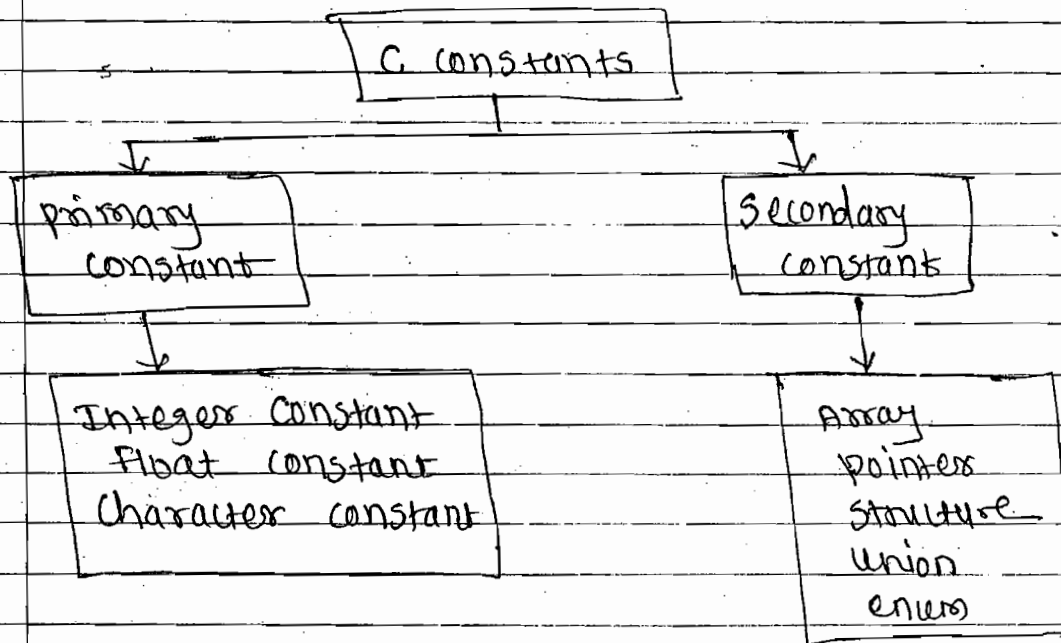 C constants
primary
constant
Secondary
constant
Integer Constant
Float constant
Character constant
Array
pointer
structure
union
enum